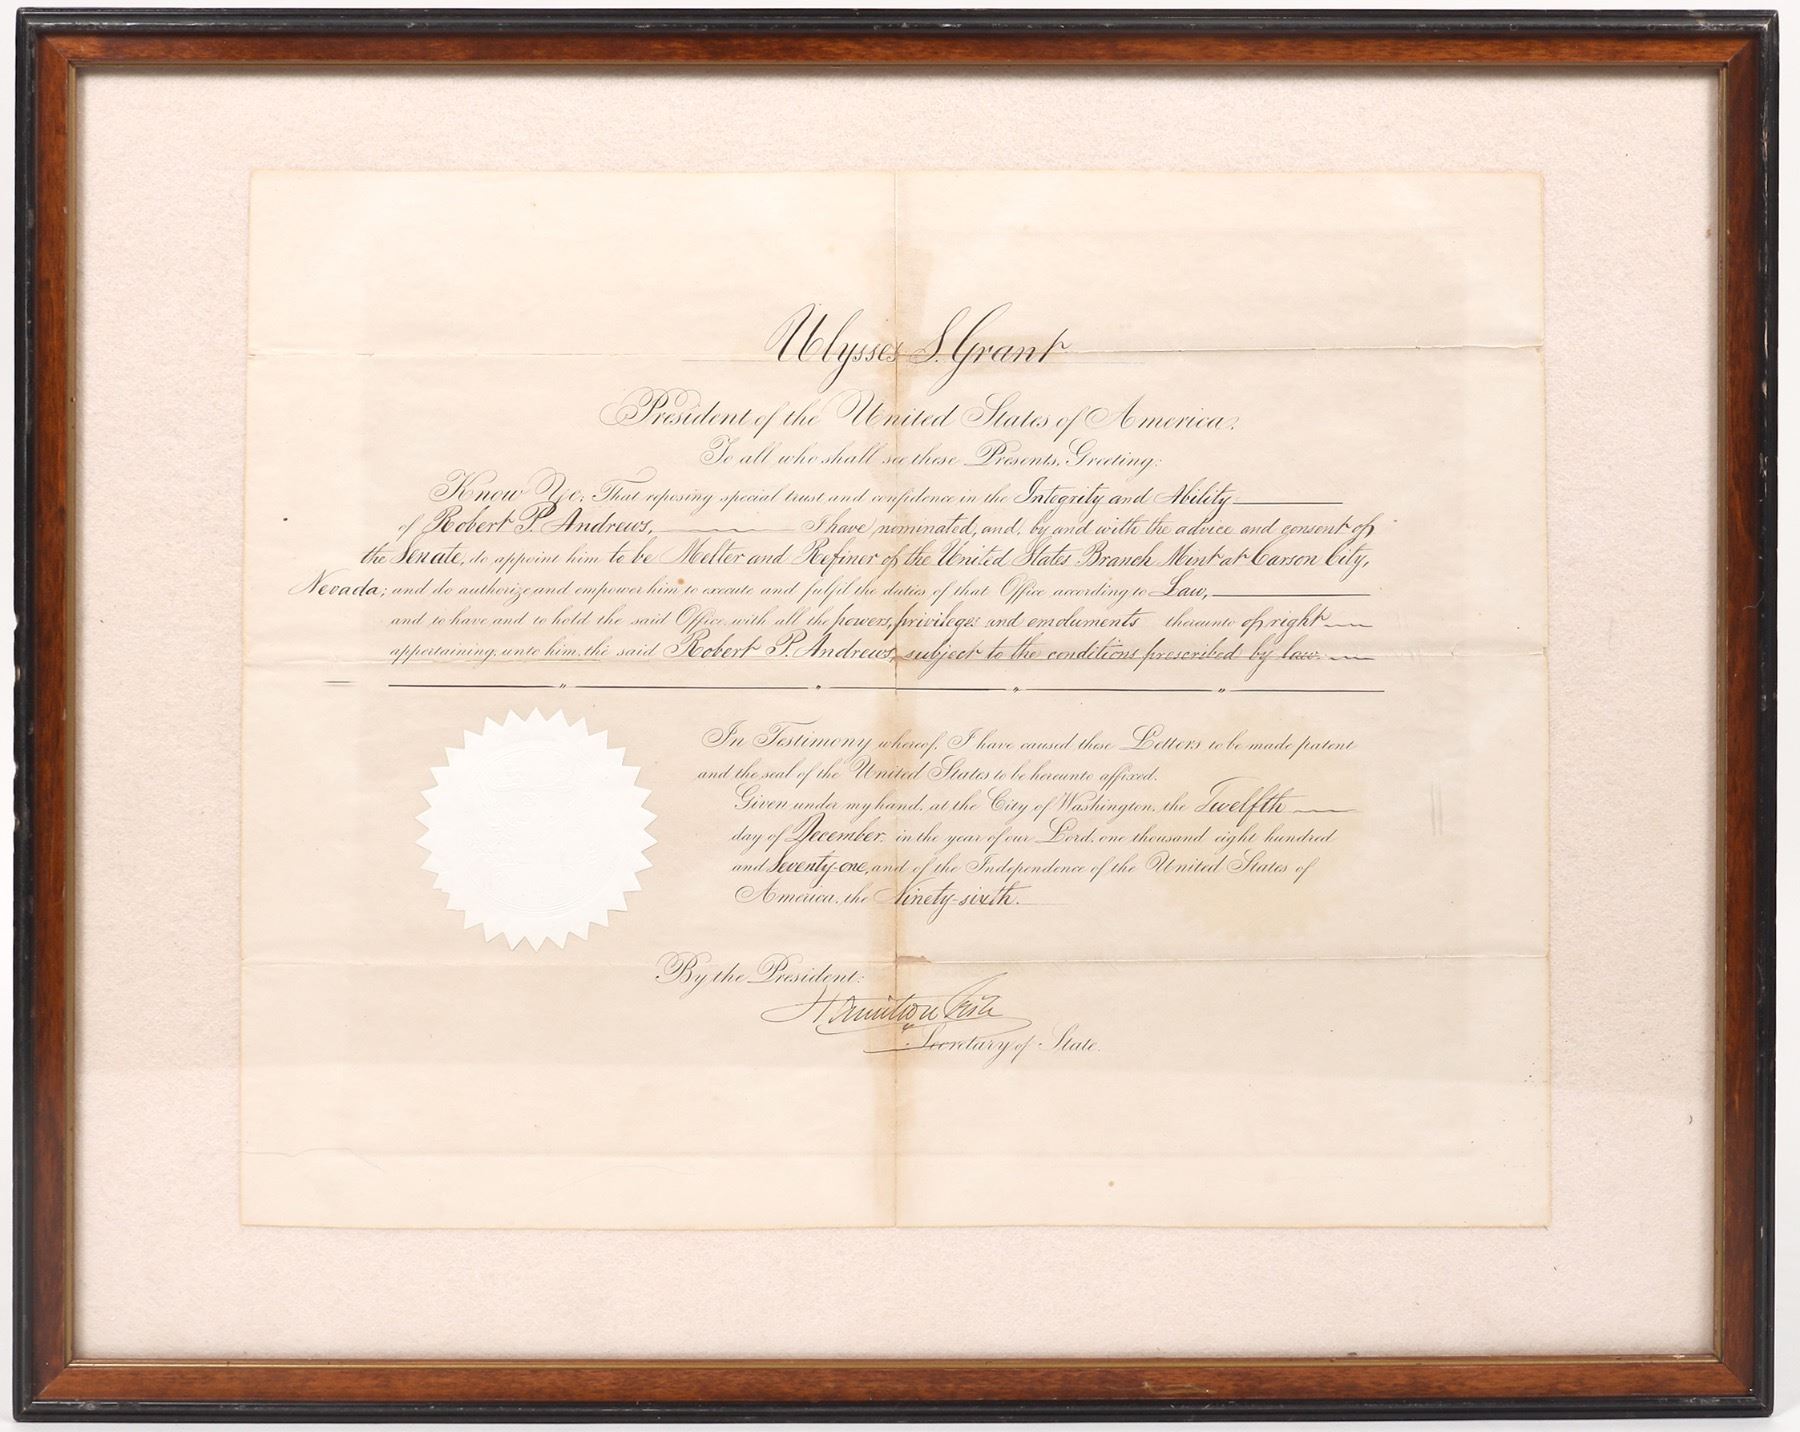 Ulysses S. Grant
President of the United States of America.
To all who shall see these Presents, Greeting:
Know Ye; That reposing special trust and confidence in the Integrity and Ability
of Robert P. Andrews, I have nominated, and, by and with the advice and consent of
the Senate, do appoint him to be Melter and Refiner of the United States Branch Mint at Carson City,
Nevada; and do authorize and empower him to execute and fulfil the duties of that Office according to Law,
and to have and to hold the said Office, with all the powers, privileges and emoluments thereunto of right
appertaining, unto him, the said Robert P. Andrews, subject to the conditions prescribed by law.
In Testimony whereof, I have caused these Letters to be made patent
and the seal of the United States to be hereunto affixed.
Given under my hand, at the City of Washington, the Twelfth
day of December, in the year of our Lord, one thousand eight hundred
and Seventy-one, and of the Independence of the United States of
America, the Ninety-sixth.
By the President:
Hamilton Fish
Secretary of State.